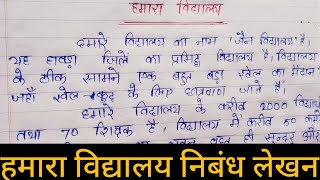 हमारा विद्यालय
हमारे विद्यालय का नाम 'जैन विद्यालय' है।
यह हावड़ा जिले का प्रसिद्ध विद्यालय है, विद्यालय
के ठीक सामने एक बहुत बड़ा खेल का मैदान
जहाँ खेल-कूद के लिए छात्रगण जाते हैं।
हमारे विद्यालय के करीब 2000 विद्या
तथा 70 शिक्षक है, विद्यालय में करीब 50 कमरे
हमारा विद्यालय निबंध लेखन